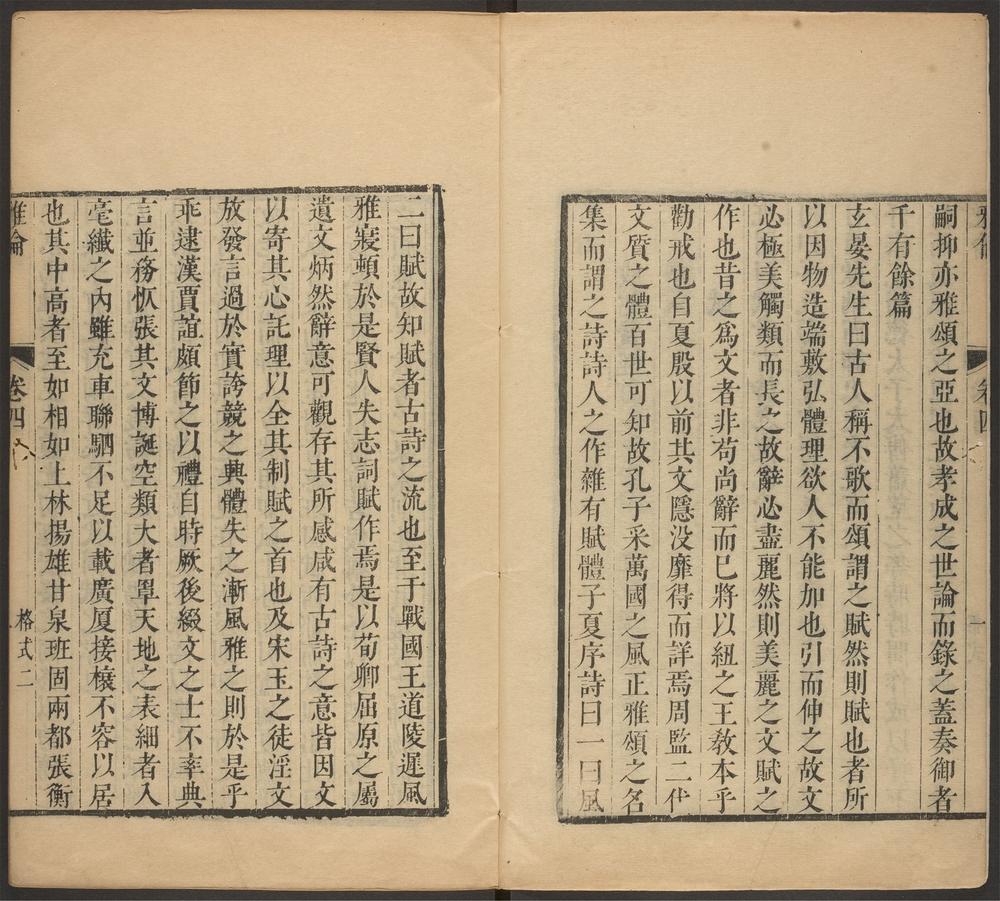 嗣抑亦雅頌之亞也故孝成之世論而錄之蓋奏御者
千有餘篇
玄晏先生曰古人稱不歌而頌謂之賦然則賦也者所
以因物造端敷弘體理欲人不能加也引而伸之故文
必極美觸類而長之故辭必盡麗然則美麗之文賦之
作也昔之爲文者非苟尚辭而已將以紐之王敎本乎
勸戒也自夏殷以前其文隱没靡得而詳焉周監二代
文質之體百世可知故孔子采萬國之風正雅頌之名
集而謂之詩詩人之作雜有賦體子夏序詩曰一曰風
二曰賦故知賦者古詩之流也至于戰國王道陵遲風
雅寖頓於是賢人失志詞賦作焉是以荀卿屈原之屬
遺文炳然辭意可觀存其所感咸有古詩之意皆因文
以寄其心託理以全其制賦之首也及宋玉之徒淫文
放發言過於實誇競之興體失之漸風雅之則於是乎
乖逮漢賈誼頗節之以禮自時厥後綴文之士不率典
言並務恢張其文博誕空類大者罩天地之表細者入
毫纖之内雖充車聯駟不足以載廣厦接榱不容以居
也其中高者至如相如上林揚雄甘泉班固兩都張衡
雅倫
卷四
格式二